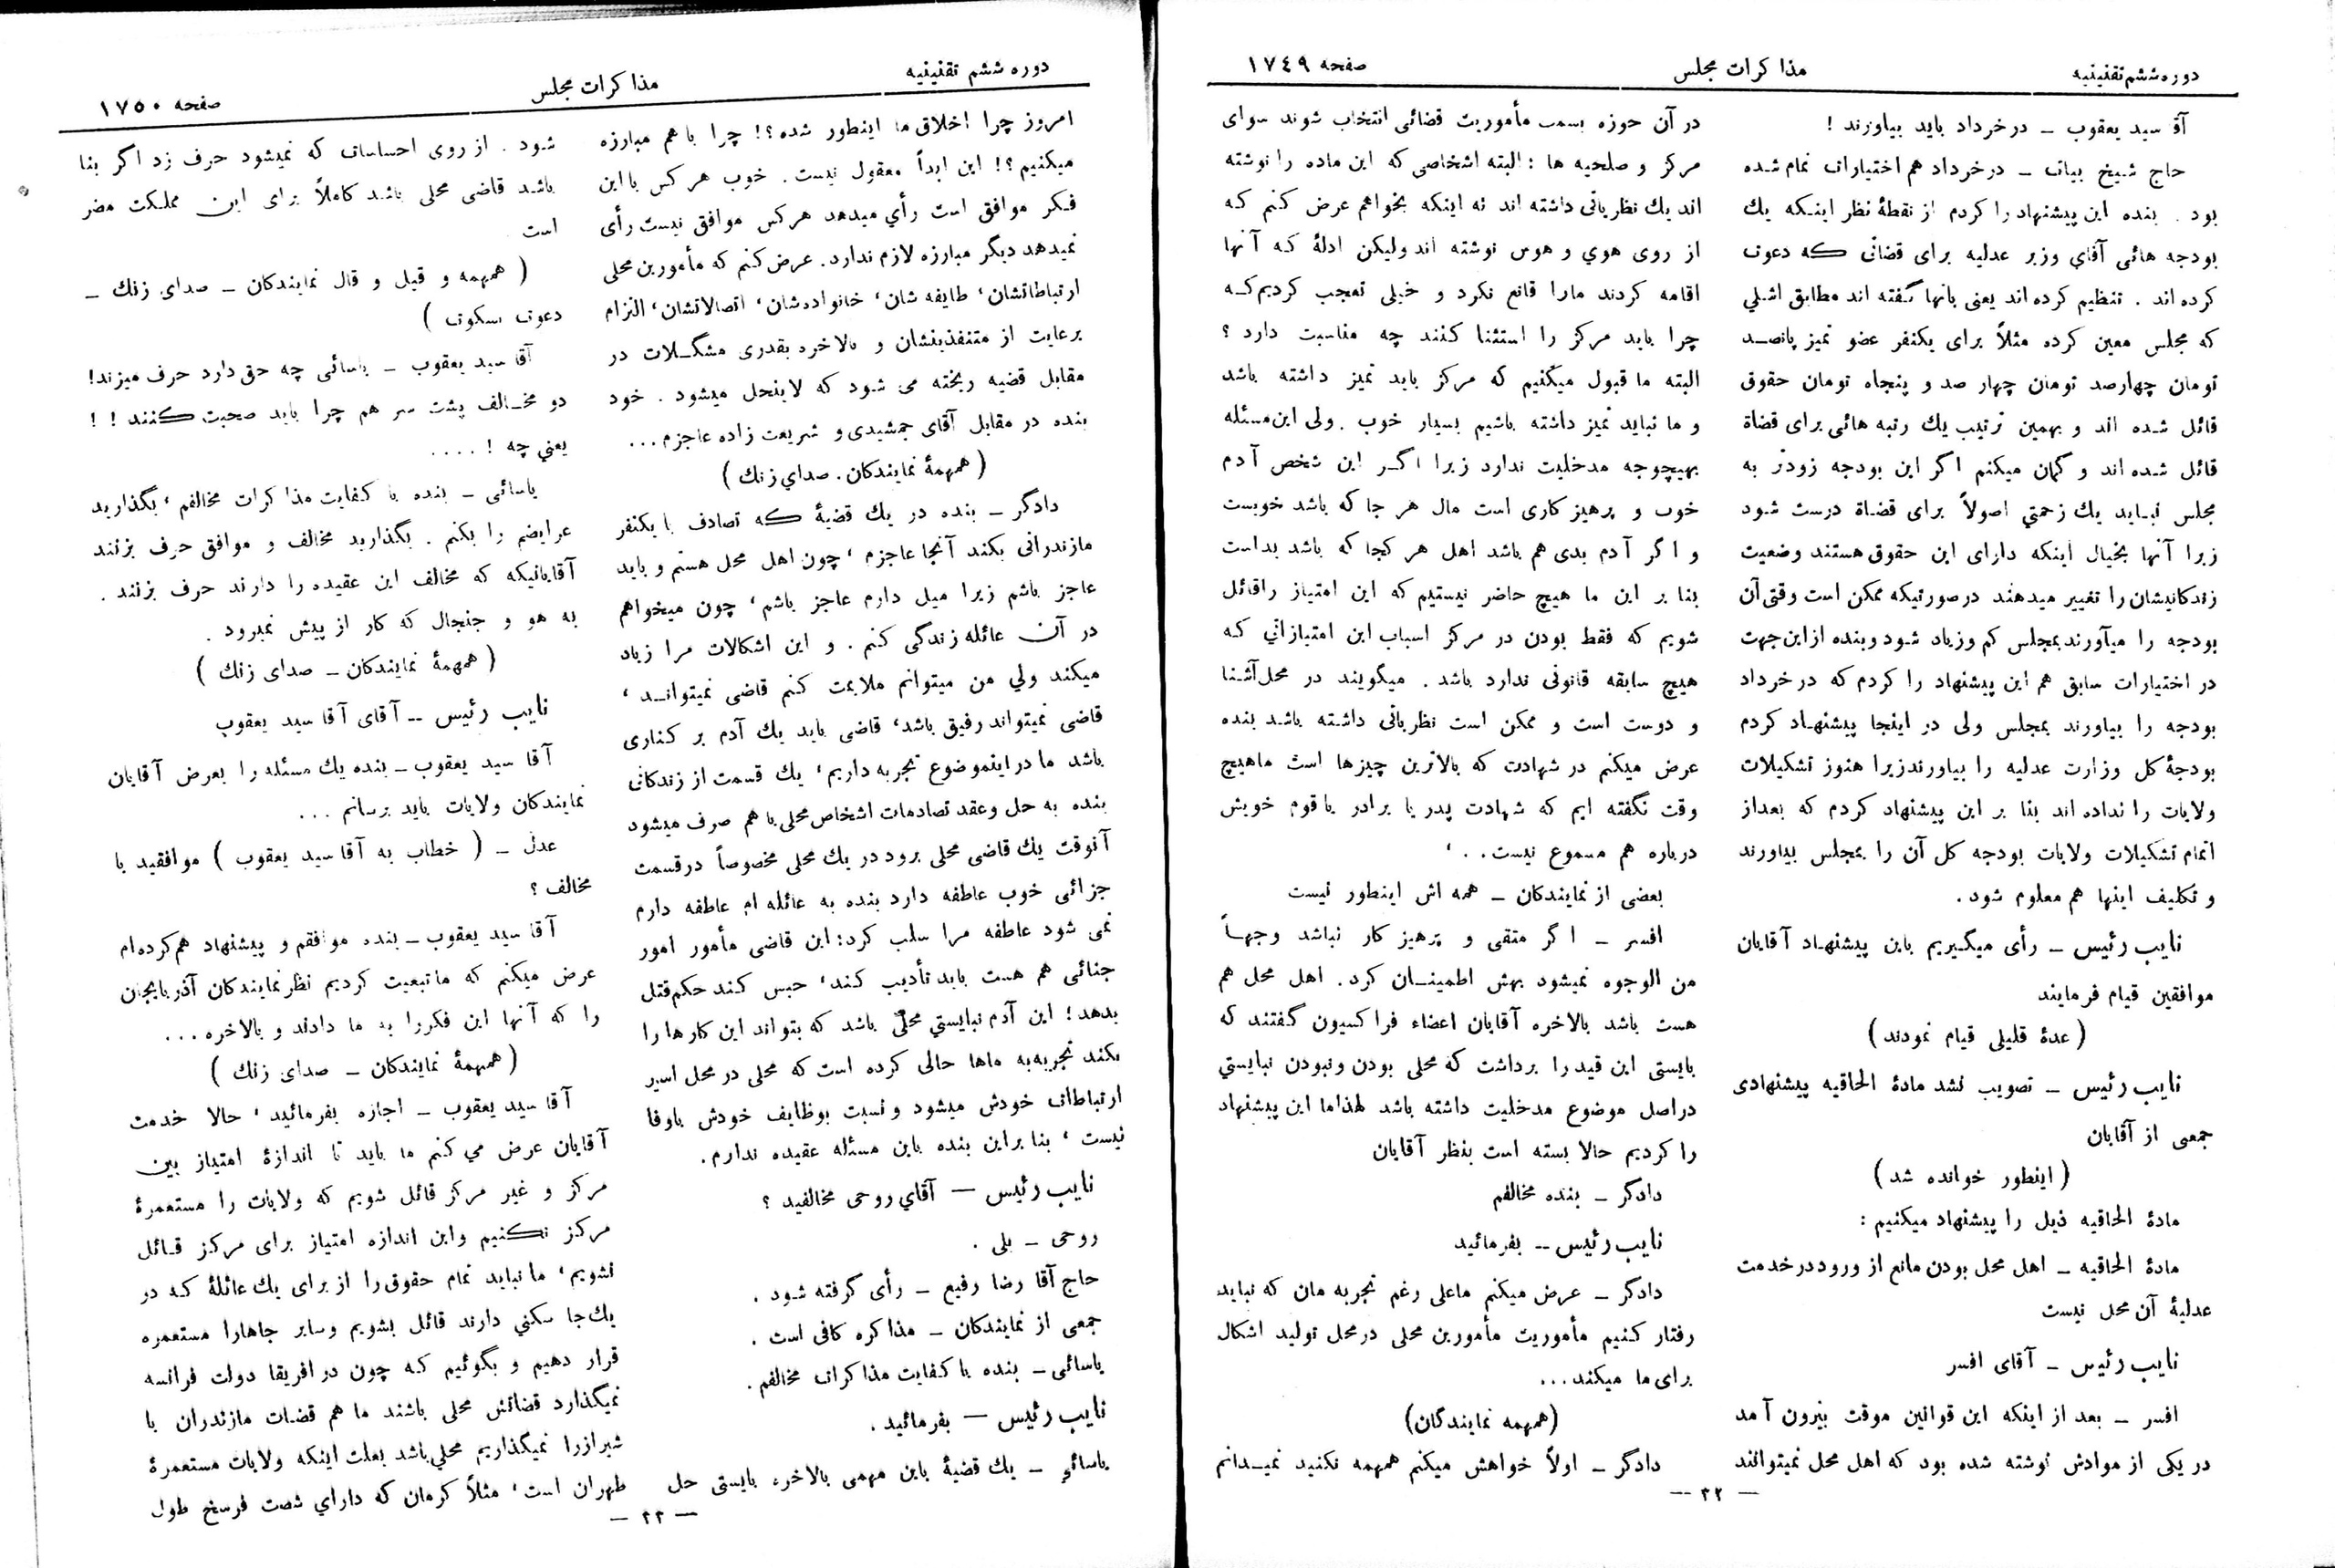 دوره ششم تقنینیه
مذاکرات مجلس
صفحه ١٧٤٩
آقا سید یعقوب ــ در خرداد باید بیاورند !
حاج شیخ بیات ــ در خرداد هم اختیارات تمام شده
بود . بنده این پیشنهاد را کردم از نقطهٔ نظر اینکه یك
بودجه هائی آقای وزیر عدلیه برای قضاتی که دعوت
کرده اند . تنظیم کرده اند یعنی بآنها گفته اند مطابق اشلی
که مجلس معین کرده مثلاً برای یکنفر عضو تمیز پانصد
تومان چهارصد تومان چهار صد و پنجاه تومان حقوق
قائل شده اند و بهمین ترتیب یك رتبه هائی برای قضاة
قائل شده اند و گمان میکنم اگر این بودجه زودتر به
مجلس نیاید یك زحمتی اصولاً برای قضاة درست شود
زیرا آنها بخیال اینکه دارای این حقوق هستند وضعیت
زندکانیشان را تغییر میدهند در صورتیکه ممکن است وقتی آن
بودجه را میآورند بمجلس کم وزیاد شود و بنده از این جهت
در اختیارات سابق هم این پیشنهاد را کردم که در خرداد
بودجه را بیاورند بمجلس ولی در اینجا پیشنهاد کردم
بودجهٔ کل وزارت عدلیه را بیاورند زیرا هنوز تشکیلات
ولایات را نداده اند بنا بر این پیشنهاد کردم که بعد از
اتمام تشکیلات ولایات بودجه کل آن را بمجلس بیاورند
و تکلیف اینها هم معلوم شود .
نایب رئیس ــ رأی میگیریم باین پیشنهاد آقایان
موافقین قیام فرمایند
( عدهٔ قلیلی قیام نمودند )
نایب رئیس ــ تصویب نشد مادهٔ الحاقیه پیشنهادی
جمعی از آقایان
( اینطور خوانده شد )
مادهٔ الحاقیه ذیل را پیشنهاد میکنیم :
مادهٔ الحاقیه ــ اهل محل بودن مانع از ورود در خدمت
عدلیهٔ آن محل نیست
نایب رئیس ــ آقای افسر
افسر ــ بعد از اینکه این قوانین موقت بیرون آمد
در یکی از موادش نوشته شده بود که اهل محل نمیتوانند
در آن حوزه بسمت مأموریت قضائی انتخاب شوند سوای
مرکز و صلحیه ها : البته اشخاصی که این ماده را نوشته
اند یك نظریاتی داشته اند نه اینکه بخواهم عرض کنم که
از روی هوي و هوس نوشته اند ولیکن ادلهٔ که آنها
اقامه کردند مارا قانع نکرد و خیلی تعجب کردیم که
چرا باید مرکز را استثنا کنند چه مناسبت دارد ؟
البته ما قبول میکنیم که مرکز باید تمیز داشته باشد
و ما نباید تمیز داشته باشیم بسیار خوب . ولی این مسئله
بهیچوجه مدخلیت ندارد زیرا اگر این شخص آدم
خوب و پرهیز کاری است مال هر جا که باشد خوبست
و اگر آدم بدی هم باشد اهل هر کجا که باشد بد است
بنا بر این ما هیچ حاضر نیستیم که این امتیاز را قائل
شویم که فقط بودن در مرکز اسباب این امتیازاتی که
هیچ سابقه قانونی ندارد باشد . میگویند در محل آشنا
و دوست است و ممکن است نظریاتی داشته باشد بنده
عرض میکنم در شهادت که بالاترین چیزها است ماهیچ
وقت نگفته ایم که شهادت پدر یا برادر یا قوم خویش
درباره هم مسموع نیست . . .
بعضی از نمایندکان ــ همه اش اینطور نیست
افسر ــ اگر متقی و پرهیز کار نباشد وجهاً
من الوجوه نمیشود بهش اطمینان کرد . اهل محل هم
هست باشد بالاخره آقایان اعضاء فراکسیون گفتند که
بایستی این قید را برداشت که محلی بودن و نبودن نبایستي
در اصل موضوع مدخلیت داشته باشد لهذا ما این پیشنهاد
را کردیم حالا بسته است بنظر آقایان
دادکر ــ بنده مخالفم
نایب رئیس ــ بفرمائید
دادکر ــ عرض میکنم ماعلی رغم تجربه مان که نباید
رفتار کنیم مأموریت مأمورین محلی در محل تولید اشکال
برای ما میکند . . .
(همهمه نمایندگان)
دادکر ــ اولاً خواهش میکنم همهمه نکنید نمیدانم
— ٣٢ —
دوره ششم تقنینیه
مذاکرات مجلس
صفحه ١٧٥٠
امروز چرا اخلاق ما اینطور شده ؟! چرا با هم مبارزه
میکنیم ؟! این ابداً معقول نیست . خوب هر کس با این
فکر موافق است رأي میدهد هرکس موافق نیست رأی
نمیدهد دیگر مبارزه لازم ندارد . عرض کنم که مأمورین محلی
ارتباطاتشان ، طایفه شان ، خانواده شان ، اتصالاتشان ، التزام
برعایت از متنفذینشان و بالاخره بقدری مشکلات در
مقابل قضیه ریخته می شود که لاینحل میشود . خود
بنده در مقابل آقای جمشیدی و شریعت زاده عاجزم . . .
( همهمهٔ نمایندکان . صداي زنك )
دادگر ــ بنده در یك قضیهٔ که تصادف با یکنفر
مازندرانی بکند آنجا عاجزم ، چون اهل محل هستم و باید
عاجز باشم زیرا میل دارم عاجز باشم ، چون میخواهم
در آن عائله زندگی کنم . و این اشکالات مرا زیاد
میکند ولي من میتوانم ملایمت کنم قاضی نمیتواند ،
قاضی نمیتواند رفیق باشد ، قاضی باید یك آدم بر کناری
باشد ما در اینموضوع تجربه داریم ، یك قسمت از زندکانی
بنده به حل وعقد تصادمات اشخاص محلی با هم صرف میشود
آنوقت یك قاضی محلی برود در یك محلی مخصوصاً در قسمت
جزائی خوب عاطفه دارد بنده به عائله ام عاطفه دارم
نمی شود عاطفه مرا سلب کرد : این قاضی مأمور امور
جنائی هم هست باید تأدیب کند ، حبس کند حکم قتل
بدهد ! این آدم نبایستي محلی باشد که بتواند این کارها را
بکند تجربه به ماها حالی کرده است که محلی در محل اسیر
ارتباطات خودش میشود و نسبت بوظایف خودش باوفا
نیست ، بنا براین بنده باین مسئله عقیده ندارم .
نایب رئیس — آقاي روحی مخالفید ؟
روحی ــ بلی .
حاج آقا رضا رفیع ــ رأی گرفته شود .
جمعی از نمایندکان ــ مذاکره کافی است .
یاسائی ــ بنده با کفایت مذاکرات مخالفم .
نایب رئیس — بفرمائید .
یاسائي ــ یك قضیهٔ باین مهمی بالاخره بایستی حل
شود . از روی احساسات که نمیشود حرف زد اگر بنا
باشد قاضی محلی باشد کاملاً برای این مملکت مضر
است .
( همهمه و قیل و قال نمایندکان ــ صدای زنك ــ
دعوت بسکوت )
آقا سید یعقوب ــ یاسائی چه حق دارد حرف میزند !
دو مخالف پشت سر هم چرا باید صحبت کنند ! !
یعني چه ! . . . .
یاسائی ــ بنده با کفایت مذاکرات مخالفم ، بگذارید
عرایضم را بکنم . بگذارید مخالف و موافق حرف بزنند
آقایانیکه که مخالف این عقیده را دارند حرف بزنند .
به هو و جنجال که کار از پیش نمیرود .
( همهمهٔ نمایندکان ــ صدای زنك )
نایب رئیس ــ آقای آقا سید یعقوب
آقا سید یعقوب ــ بنده یك مسئله را بعرض آقایان
نمایندکان ولایات باید برسانم . . .
عدل ــ ( خطاب به آقا سید یعقوب ) موافقید یا
مخالف ؟
آقا سید یعقوب ــ بنده موافقم و پیشنهاد هم کرده ام
عرض میکنم که ما تبعیت کردیم نظر نمایندکان آذربایجان
را که آنها این فکر را به ما دادند و بالاخره . . .
( همهمهٔ نمایندکان ــ صدای زنك )
آقا سید یعقوب ــ اجازه بفرمائید ، حالا خدمت
آقایان عرض می کنم ما باید تا اندازهٔ امتیاز بین
مرکز و غیر مرکز قائل شویم که ولایات را مستعمرهٔ
مرکز نکنیم واین اندازه امتیاز برای مرکز قائل
نشویم ، ما نباید تمام حقوق را از برای یك عائلهٔ که در
یك جا سکنی دارند قائل بشویم وسایر جاهارا مستعمره
قرار دهیم و بگوئیم که چون در افریقا دولت فرانسه
نمیگذارد قضاتش محلی باشند ما هم قضات مازندران یا
شیراز را نمیگذاریم محلی باشد بعلت اینکه ولایات مستعمرهٔ
طهران است ، مثلاً کرمان که داراي شصت فرسخ طول
— ٣٣ —